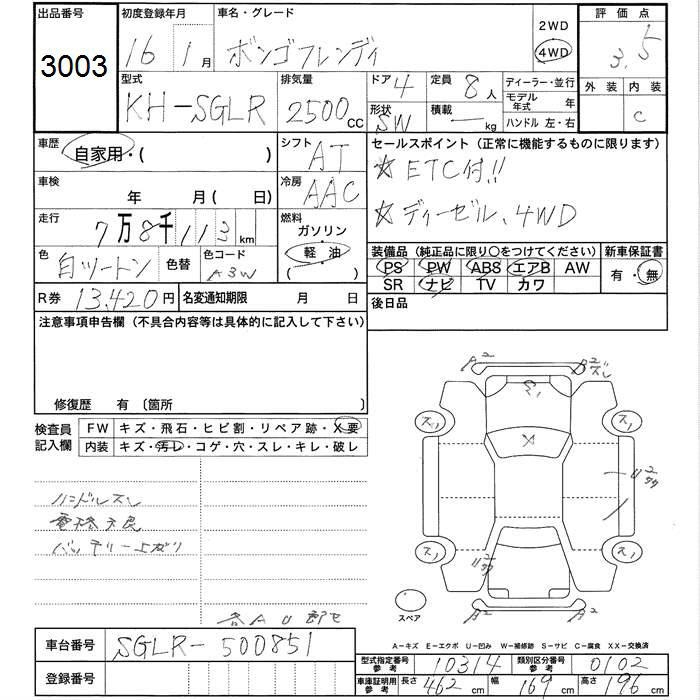 出品番号 初度登録年月 車名・グレード 2WD 4WD 評価点
3003 16 1月 ボンゴフレンディ 3.5
型式 KH-SGLR 排気量 2500cc ドア 4 定員 8人 ディーラー・並行 外装 内装
形状 SW 積載 ー kg モデル年式 年 ハンドル 左・右 C
車歴 自家用・( ) シフト AT セールスポイント(正常に機能するものに限ります)
☆ETC付!!
車検 年 月(日) 冷房 AAC
☆ディーゼル、4WD
走行 7万8千113km 燃料 ガソリン 軽・油
色 白ツートン 色替 色コード A3W
装備品(純正品に限り○をつけてください) 新車保証書
PS PW ABS エアB AW 有・無
SR ナビ TV カワ
R券 13,420円 名変通知期限 月 日 後日品
注意事項申告欄(不具合内容等は具体的に記入して下さい)
修復歴 有〔箇所 〕
検査員記入欄 FW キズ・飛石・ヒビ割・リペア跡・X要
内装 キズ・汚レ・コゲ・穴・スレ・キレ・破レ
ハンドルスレ
バッテリー上がり
スペア
A-キズ E-エクボ U-凹み W-補修跡 S-サビ C-腐食 XX-交換済
車台番号 SGLR-500851
登録番号
型式指定番号参考 10314 類別区分番号参考 0102
車庫証明用参考 長さ 462cm 幅 169cm 高さ 196cm